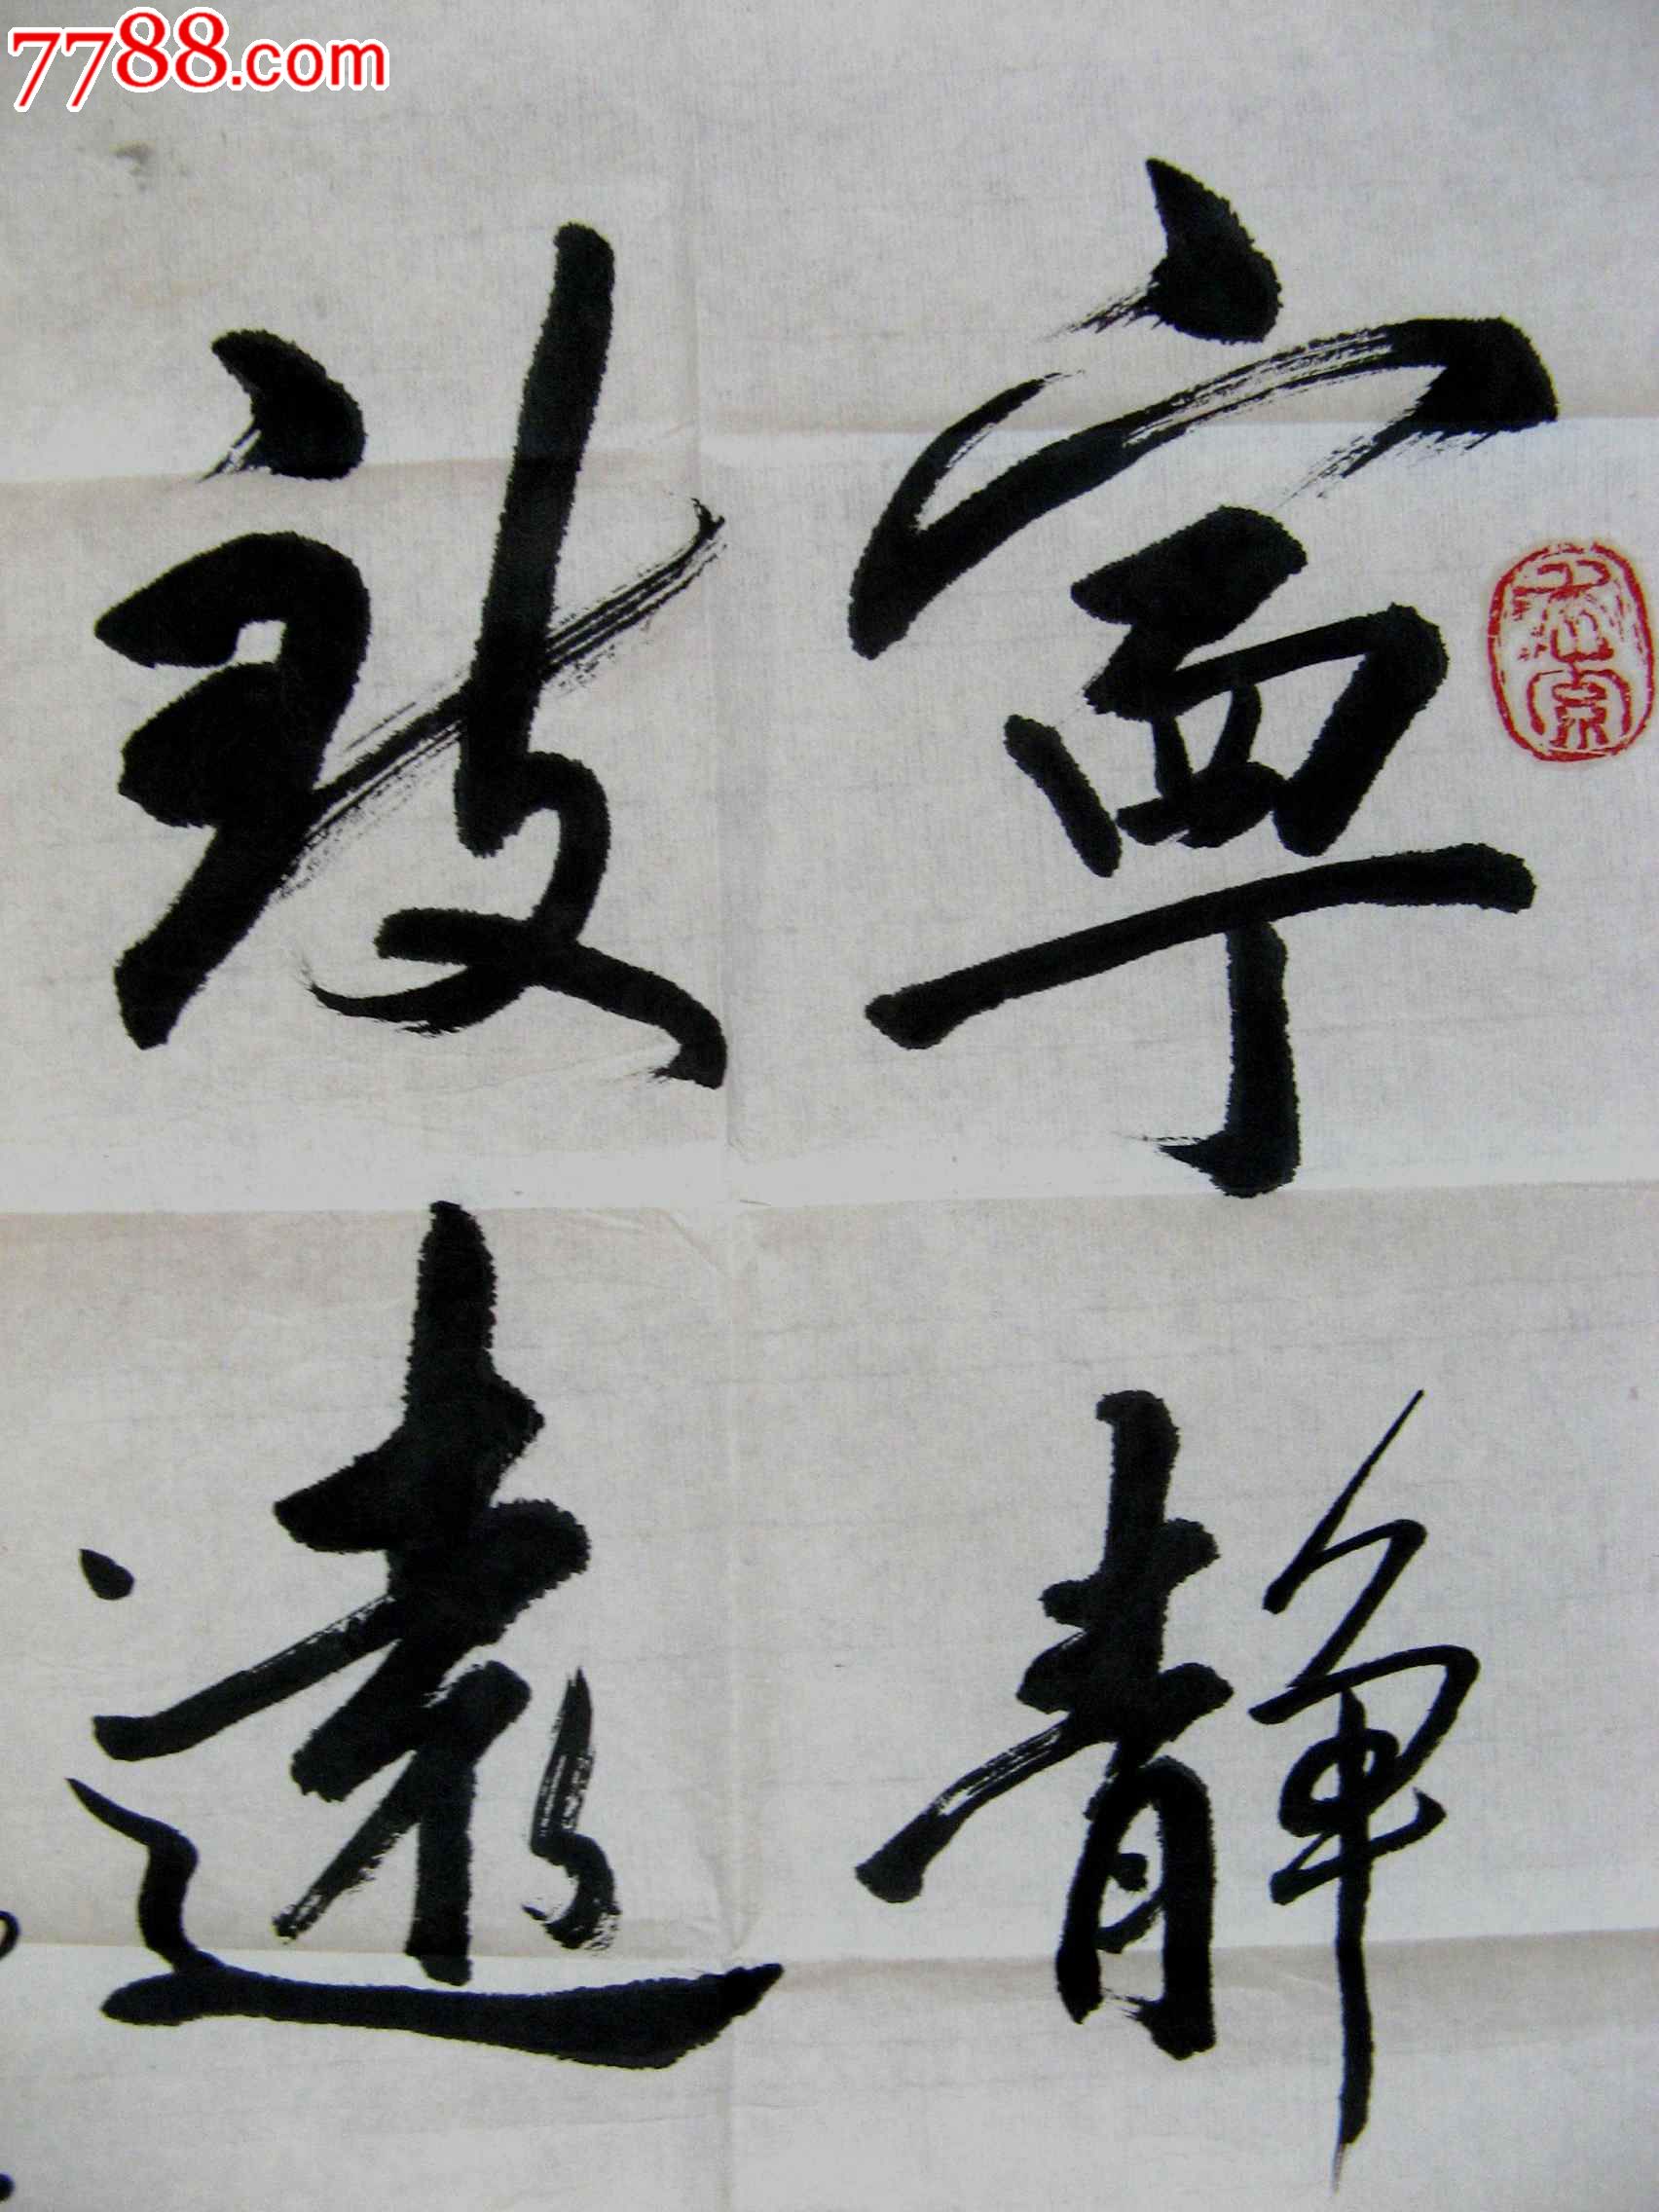 7788.com
寧靜
致遠